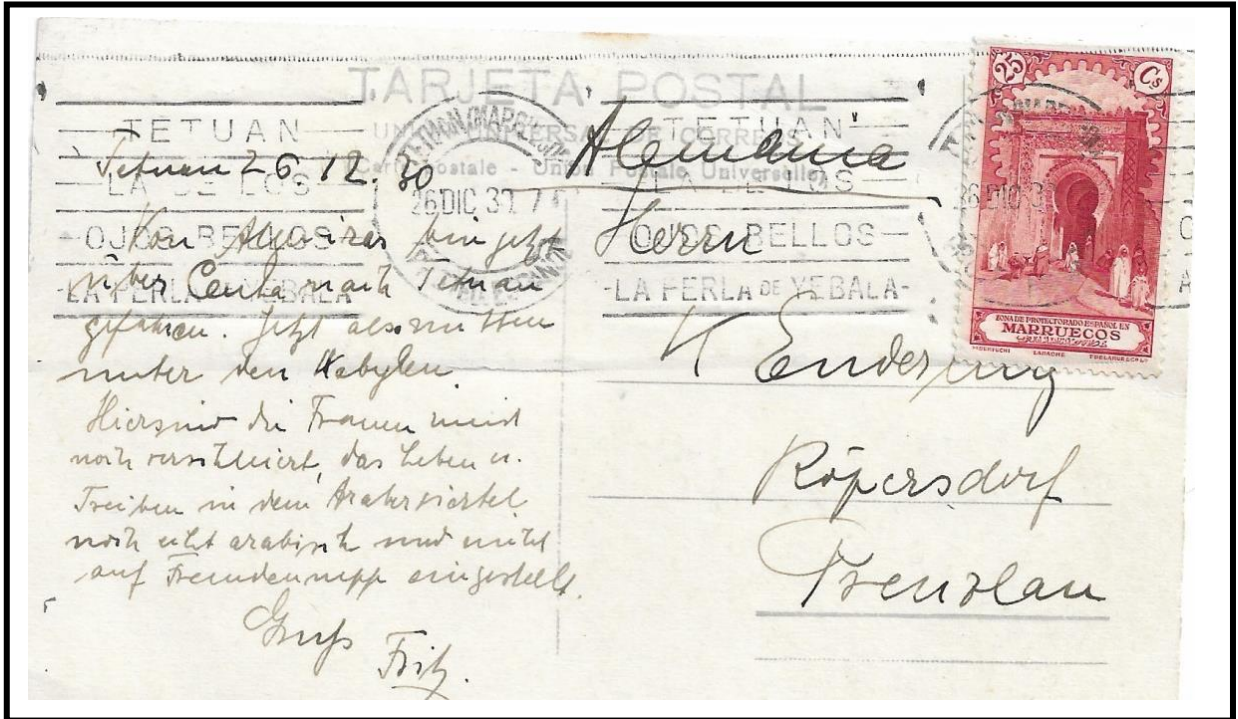 TARJETA POSTAL
UNION UNIVERSAL DE CORREOS
(Carte Postale - Union Postale Universelle)
TETUAN
LA DE LOS
OJOS BELLOS
LA PERLA DE YEBALA
TETUAN (MARRUECOS)
26 DIC 30 7
TETUAN
LA DE LOS
OJOS BELLOS
LA PERLA DE YEBALA
26 DIC 30
25 Cs
ZONA DE PROTECTORADO ESPAÑOL EN
MARRUECOS
Tetuan 26.12.30
Von Algeciras bin jetzt
über Ceuta nach Tetuan
gefahren. Jetzt also mitten
unter den Kabylen.
Hier sind die Frauen meist
noch verschleiert, das Leben u.
Treiben in dem Araberviertel
noch echt arabisch und nicht
auf Fremdennepp eingestellt.
Gruß
Fritz.
Alemania
Herrn
K
Röpersdorf
Prenzlau